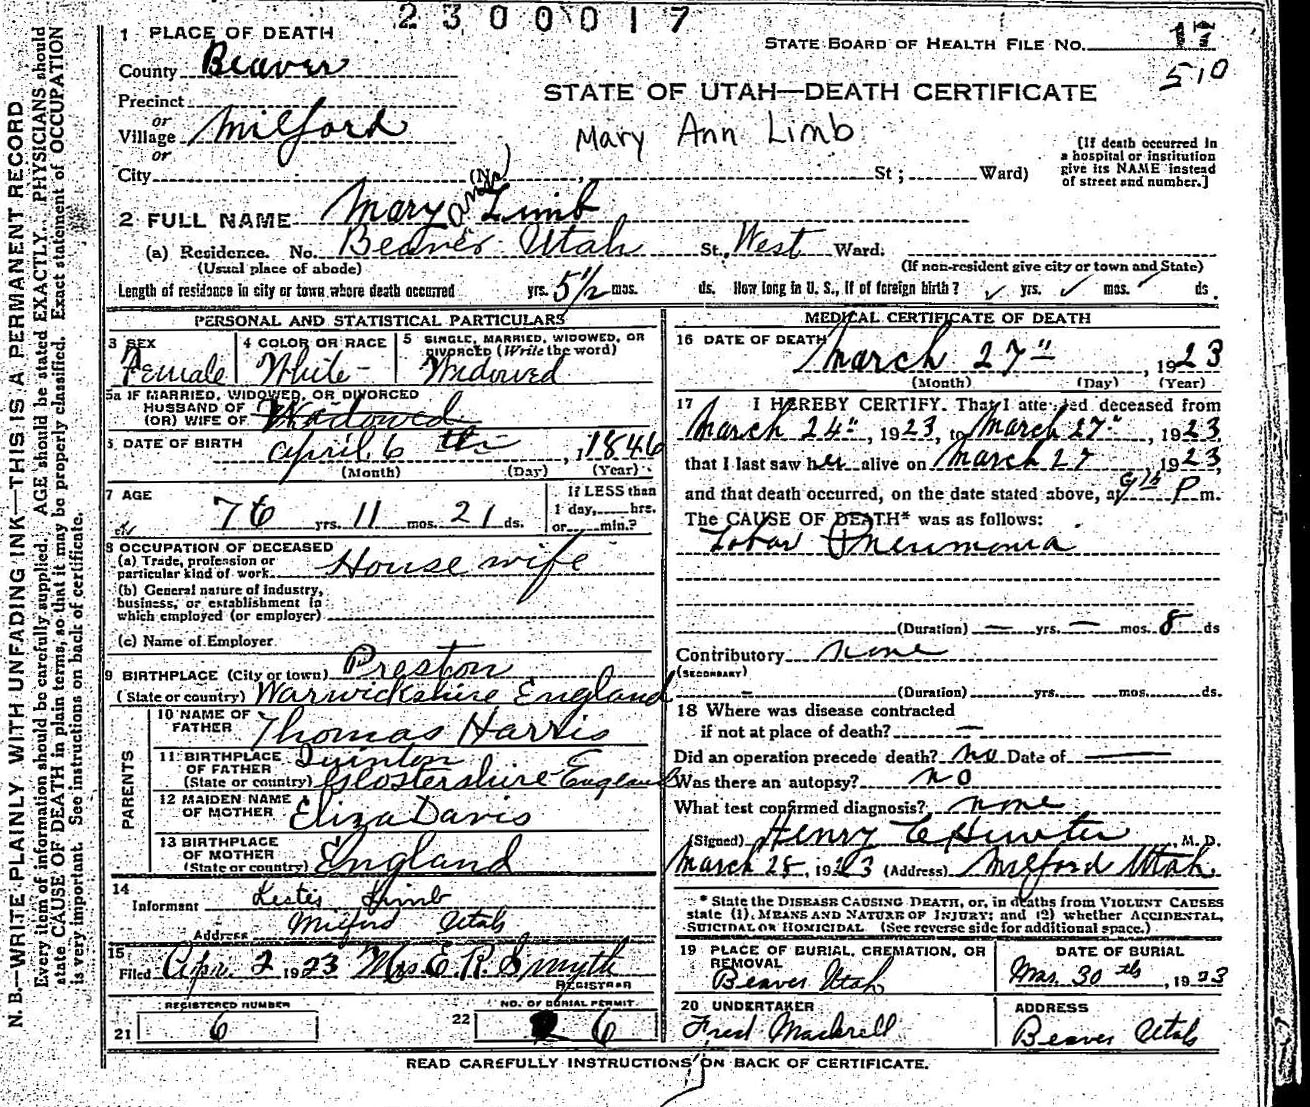 2300017
1 PLACE OF DEATH
STATE BOARD OF HEALTH FILE NO. 17
510
County Beaver
STATE OF UTAH—DEATH CERTIFICATE
Precinct
or
Village Milford
or
Mary Ann Limb
[If death occurred in
a hospital or institution
give its NAME instead
of street and number.]
City (No. St; Ward)
2 FULL NAME Mary Ann Limb
(a) Residence. No. Beaver Utah St., West Ward.
(Usual place of abode) (If non-resident give city or town and State)
Length of residence in city or town where death occurred yrs. 5½ mos. ds. How long in U. S., if of foreign birth? ✓ yrs. ✓ mos. ✓ ds.
PERSONAL AND STATISTICAL PARTICULARS
3 SEX 4 COLOR OR RACE 5 SINGLE, MARRIED, WIDOWED, OR
DIVORCED (Write the word)
Female White - Widowed
5a IF MARRIED, WIDOWED, OR DIVORCED
HUSBAND OF
(OR) WIFE OF Widowed
6 DATE OF BIRTH April 6 th, 1846
(Month) (Day) (Year)
7 AGE
76 yrs. 11 mos. 21 ds.
If LESS than
1 day, hrs.
or min.?
8 OCCUPATION OF DECEASED
(a) Trade, profession or
particular kind of work House wife
(b) General nature of industry,
business, or establishment in
which employed (or employer)
(c) Name of Employer
9 BIRTHPLACE (City or town) Preston
(State or country) Warwickshire England
PARENTS
10 NAME OF
FATHER Thomas Harris
11 BIRTHPLACE
OF FATHER Quinton
(State or country) Glostershire England
12 MAIDEN NAME
OF MOTHER Eliza Davis
13 BIRTHPLACE
OF MOTHER
(State or country) England
14
Informant Lester Limb
Address Milford Utah
15
Filed Apr. 2 1923 Mrs E. R. Smyth
REGISTRAR
REGISTERED NUMBER
21 6
NO. OF BURIAL PERMIT
22 6
MEDICAL CERTIFICATE OF DEATH
16 DATE OF DEATH March 27", 1923
(Month) (Day) (Year)
17 I HEREBY CERTIFY. That I attended deceased from
March 24", 1923, to March 27" 1923
that I last saw her alive on March 27, 1923,
and that death occurred, on the date stated above, at P m.
The CAUSE OF DEATH* was as follows:
Lobar Pneumonia
(Duration) — yrs. — mos. 8 ds
Contributory none
(SECONDARY)
(Duration) yrs. mos. ds.
18 Where was disease contracted
if not at place of death? —
Did an operation precede death? no Date of —
Was there an autopsy? no
What test confirmed diagnosis? none
(Signed) Henry C Hunter, M. D.
March 28, 1923 (Address) Milford Utah
* State the DISEASE CAUSING DEATH, or, in deaths from VIOLENT CAUSES
state (1), MEANS AND NATURE OF INJURY; and (2) whether ACCIDENTAL,
SUICIDAL OR HOMICIDAL. (See reverse side for additional space.)
19 PLACE OF BURIAL, CREMATION, OR
REMOVAL
Beaver Utah
DATE OF BURIAL
Mar. 30 th, 1923
20 UNDERTAKER
Fred Mackrell
ADDRESS
Beaver Utah
READ CAREFULLY INSTRUCTIONS ON BACK OF CERTIFICATE.
N. B.—WRITE PLAINLY WITH UNFADING INK—THIS IS A PERMANENT RECORD
Every item of information should be carefully supplied. AGE should be stated EXACTLY. PHYSICIANS should
state CAUSE OF DEATH in plain terms, so that it may be properly classified. Exact statement of OCCUPATION
is very important. See instructions on back of certificate.